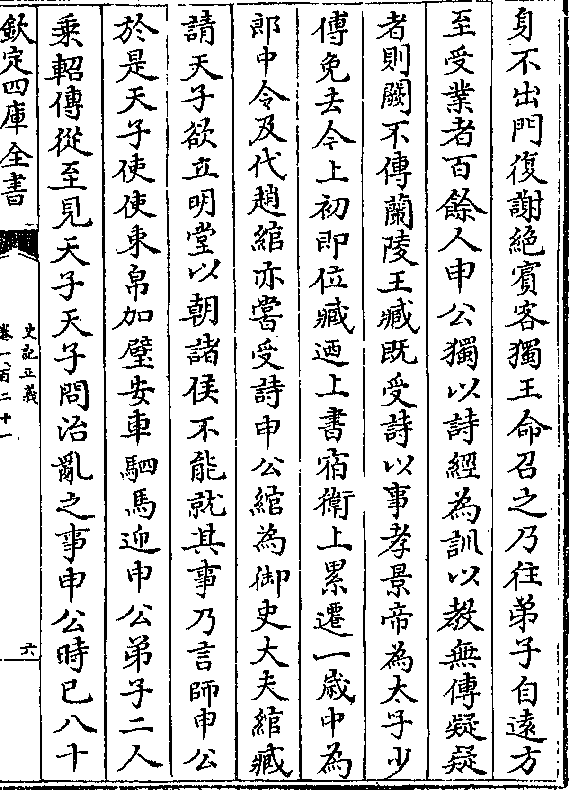 身不出門復謝絶賔客獨王命召之乃往弟子自逺方
至受業者百餘人申公獨以詩經為訓以教無傳疑疑
者則闕不傳蘭陵王臧既受詩以事孝景帝為太子少
傅免去今上初即位臧迺上書宿衛上累遷一歳中為
郎中令及代趙綰亦嘗受詩申公綰為御史大夫綰臧
請天子欲立明堂以朝諸侯不能就其事乃言師申公
於是天子使使束帛加璧安車駟馬迎申公弟子二人
乘軺傳從至見天子天子問治亂之事申公時已八十
欽定四庫全書
史記正義
卷一百二十一
六